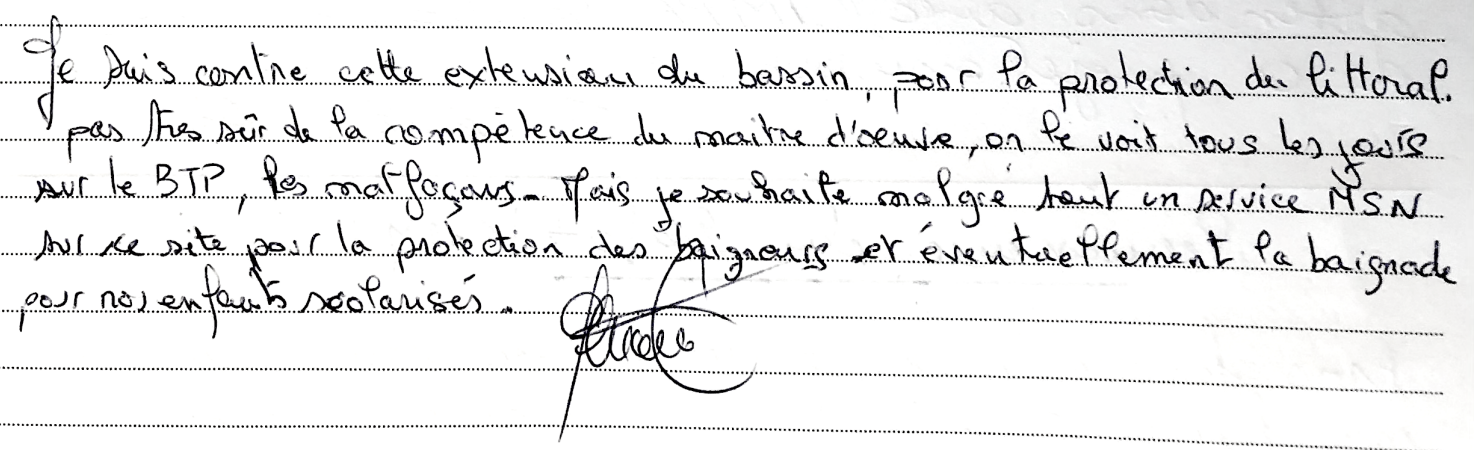 Je suis contre cette extension du bassin, pour la protection du littoral.
pas très sûr de la compétence du maitre d'oeuvre, on le voit tous les jours
sur le BTP, les malfaçons. Mais je souhaite malgré tout un service MSN
sur ce site pour la protection des baigneurs et éventuellement la baignade
pour nos enfants scolarisés.